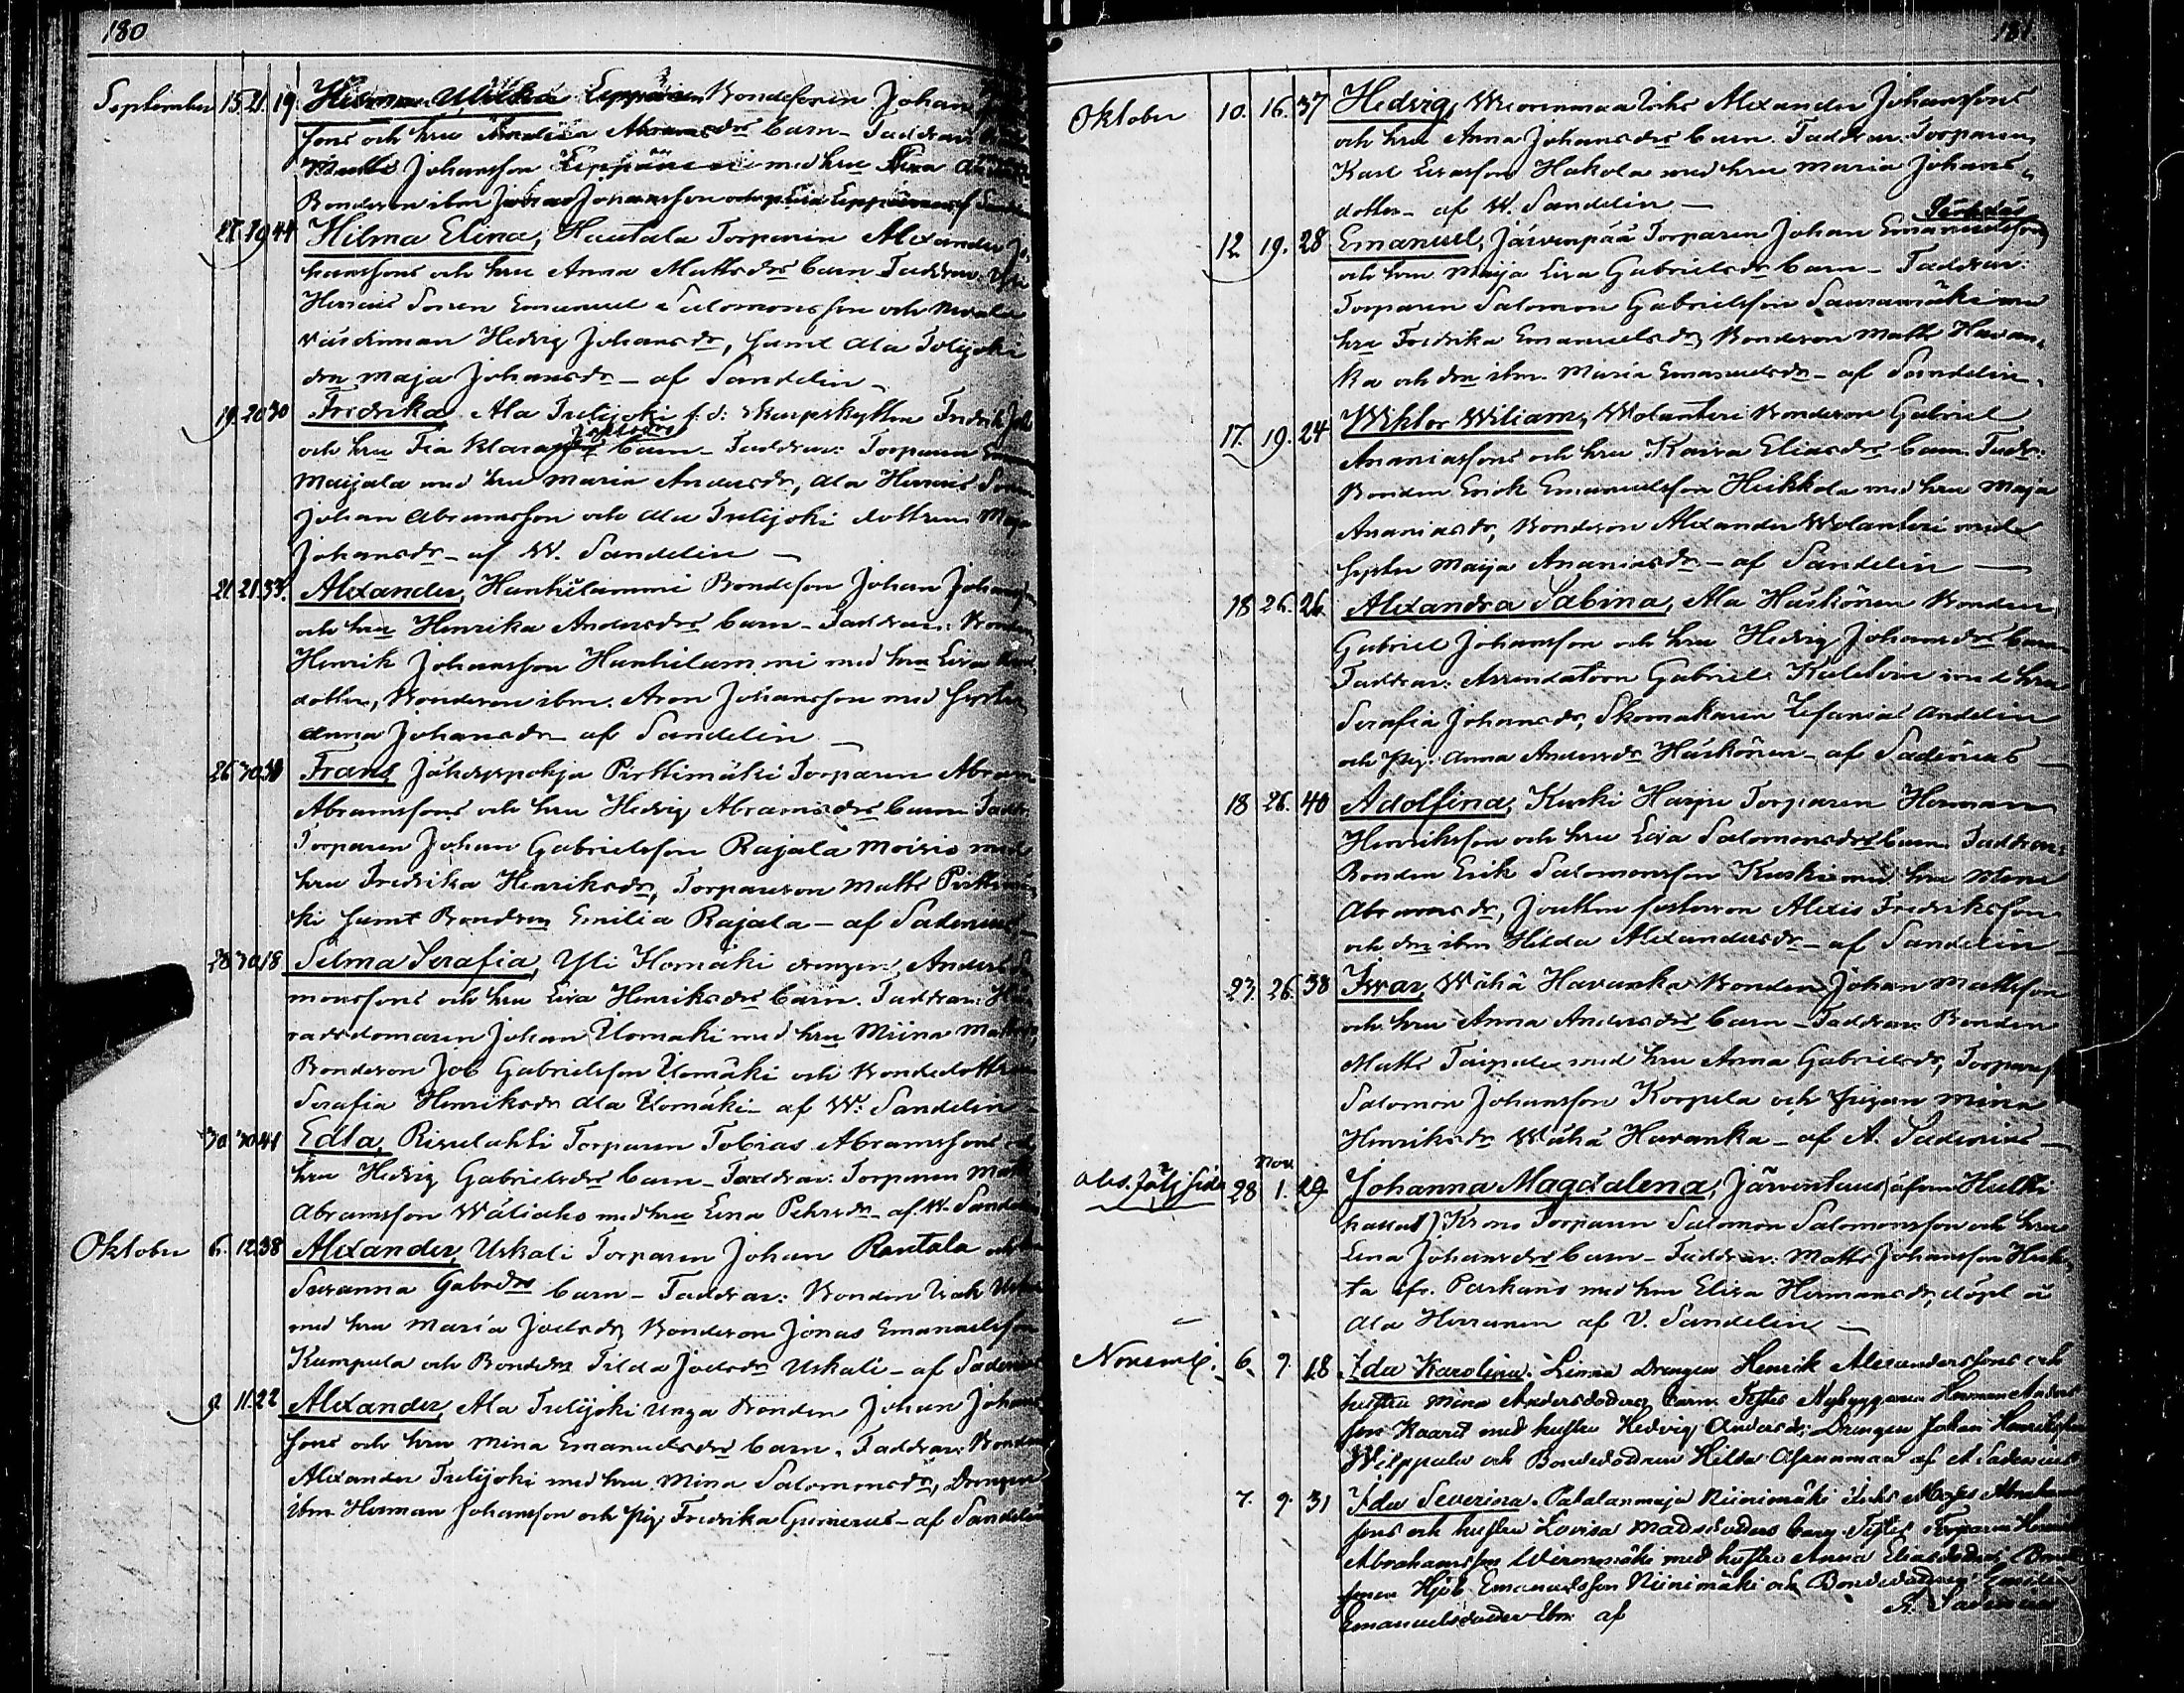 180
September 15. 21. 19. Hilma Ulrika Leppänen Bondesonen Johan
sons och hru Abramsdrs barn - Faddrar
Matts Johansson Leppänen med hru
Bondeson ibm Johansson och Eva Leppänen af Sandelin
18. 19. 44 Hilma Elina, Hautala Torparen Alexander Jo,
hanssons och hru Anna Mattsdrs barn Faddrar: Yli
Herrais Sonen Emanuel Salomonsson och
värdinnan Hedvig Johansdr, samt Ala Tulijoki
drn Maja Johansdr - af Sandelin -
19. 20 30 Fredrika Ala Tulijoki f.d: Skarpskytten Fredrik
och hru Fia Klara barn - Faddrar: Torparen
Maijala med hru Maria Andersdr, Ala Herrais Sonen
Johan Abramsson och Ala Tulijoki dottren Maja
Johansdr - af W. Sandelin -
21. 21. 33. Alexander, Hankilammi Bondeson Johan Johans
och hru Henrika Andersdrs barn - Faddrar: Bonden
Henrik Johansson Hankilammi med hru Eva
dotter, Bondeson ibm. Aron Johansson med syster
Anna Johansdr - af Sandelin -
26 30 Frans Jähdyspohja Pirttimäki Torparen Abram
Abramssons och hru Hedvig Abramsdrs barn Faddr.
Torparen Johan Gabrielsson Rajala Moisio med
hru Fredrika Henriksdr, Torpareson Matts Pirttimä,
ki samt Bondedrn Emilia Rajala - af Sadenius -
28 30 18 Selma Serafia, Yli Homäki drengen Anders
monssons och hru Eva Henriksdrs barn. Faddrar: Hä
radsdomaren Johan Ilomäki med hru Miina Matts
Bondeson Job Gabrielsson Ilomäki och Bondedottren
Serafia Henriksdr Ala Ilomäki - af W: Sandelin
30 30 41 Edla, Risulahti Torparen Tobias Abramssons
hru Hedvig Gabrielsdrs barn - Faddrar: Torparen Matts
Abramsson Wäliaho med hru Lena Pehrsdr - af W. Sandelin
Oktober 6. 12. 38 Alexander, Uskali Torparen Johan Rantala och
Susanna Gabrdrs barn - Faddrar: Bonden Isak
med hru Maria Joelsdr Bondeson Jonas Emanuelsson
Kumpula och Bonddrn Tilda Joelsdr Uskali - af Sadenius
9. 11. 22 Alexander, Ala Tulijoki Unga Bonden Johan Johans
sons och hru Mina Emanuelsdrs barn. Faddrar: Bonden
Alexander Tulijoki med hru Mina Salomonsdr, Drengen
ibm Herman Johansson och pig. Fredrika Gumerus - af Sandelin
181.
Oktober 10. 16. 37 Hedvig, Alexander Johanssons
och hru Anna Johansdrs barn. Faddrar: Torparen
Karl Ersson Hakola med hru Maria Johans,
dotter - af W. Sandelin -
12. 19. 28 Emanuel, Järvenpää Torparen Johan Emanuelsson
och hru Maija Lisa Gabrielsdrs barn - Faddrar:
Torparen Salomon Gabrielsson med
hru Fredrika Emanuelsdr, Bondeson Matts Havan,
ka och drn ibm. Maria Emanuelsdr - af Sandelin.
17. 19. 24 Wiktor Wiliam, Wolanteri Bondeson Gabriel
Ananiassons och hru Kaisa Eliasdrs barn. Fadr.
Bonden Erick Emanuelsson Heikkola med hru Maja
Ananiasdr, Bondeson Alexander Wolanteri med
syster Maija Ananiasdr - af Sandelin -
18 26. 26. Alexandra Sabina, Ala Häskönen Bonden
Gabriel Johansson och hru Hedvig Johansdrs barn
Faddrar: Arrendatorn Gabriel Kuletoin med hru
Serafia Johansdr, Skomakaren Zefanias Andelin
och pig. Anna Andersdr Häskönen - af Sadenius -
18 26. 40 Adolfina, Kuski Harju Torparen Herman
Henriksson och hru Eva Salomonsdrs barn. Faddrar:
Bonden Erik Salomonsson Kuski med hru Stina
Abramsdr, Jouttu fostersson Alexis Fredriksson
och drn ibm Hilda Alexandersdr - af Sandelin -
23. 26. 38 Iwar, Wähä Havanka Bonden Johan Mattsson
och hru Anna Andersdrs barn - Faddrar Bonden
Matts Taipale med hru Anna Gabrielsdr, Torpares
Salomon Johansson Korpela och pigan Mina
Henriksdr Wähä Havanka - af A. Sadenius -
Nov.
obs. följ sida 28 1. 29 Johanna Magdalena, Järvenhaus
Krono Torparen Salomon Salomonsson och hru
Lena Johansdrs barn - Faddrar: Matts Johansson Huh,
ta ifr. Parkano med hru Elisa Hermansdr, döpt å
Ala Herranen af V. Sandelin -
Novemb. 6. 9. 18 Ida Karolina. Linna Drengen Henrik Alexanderssons och
hustru Mina Andersdoders barn. Testes Nybyggaren Herman Anders
son Kaaret med hustru Hedvig Andersdr; Drengen Johan Henriksson
Wilppala och Bondedodren Hilda Ahvenman af A Sadenius
7. 9. 31 Ida Severina. Patalanmaja Niinimäki Moses Abraham
sons och hustru Lovisa Matsdoders barn Testes Torparen Herman
Abrahamsson Wironmäki med hustru Anna Eliasdoder, Bonde
sonen Hjob Emanuelsson Niinimäki och Bondedodren
Emanuelsdoder ibm af A. Sadenius